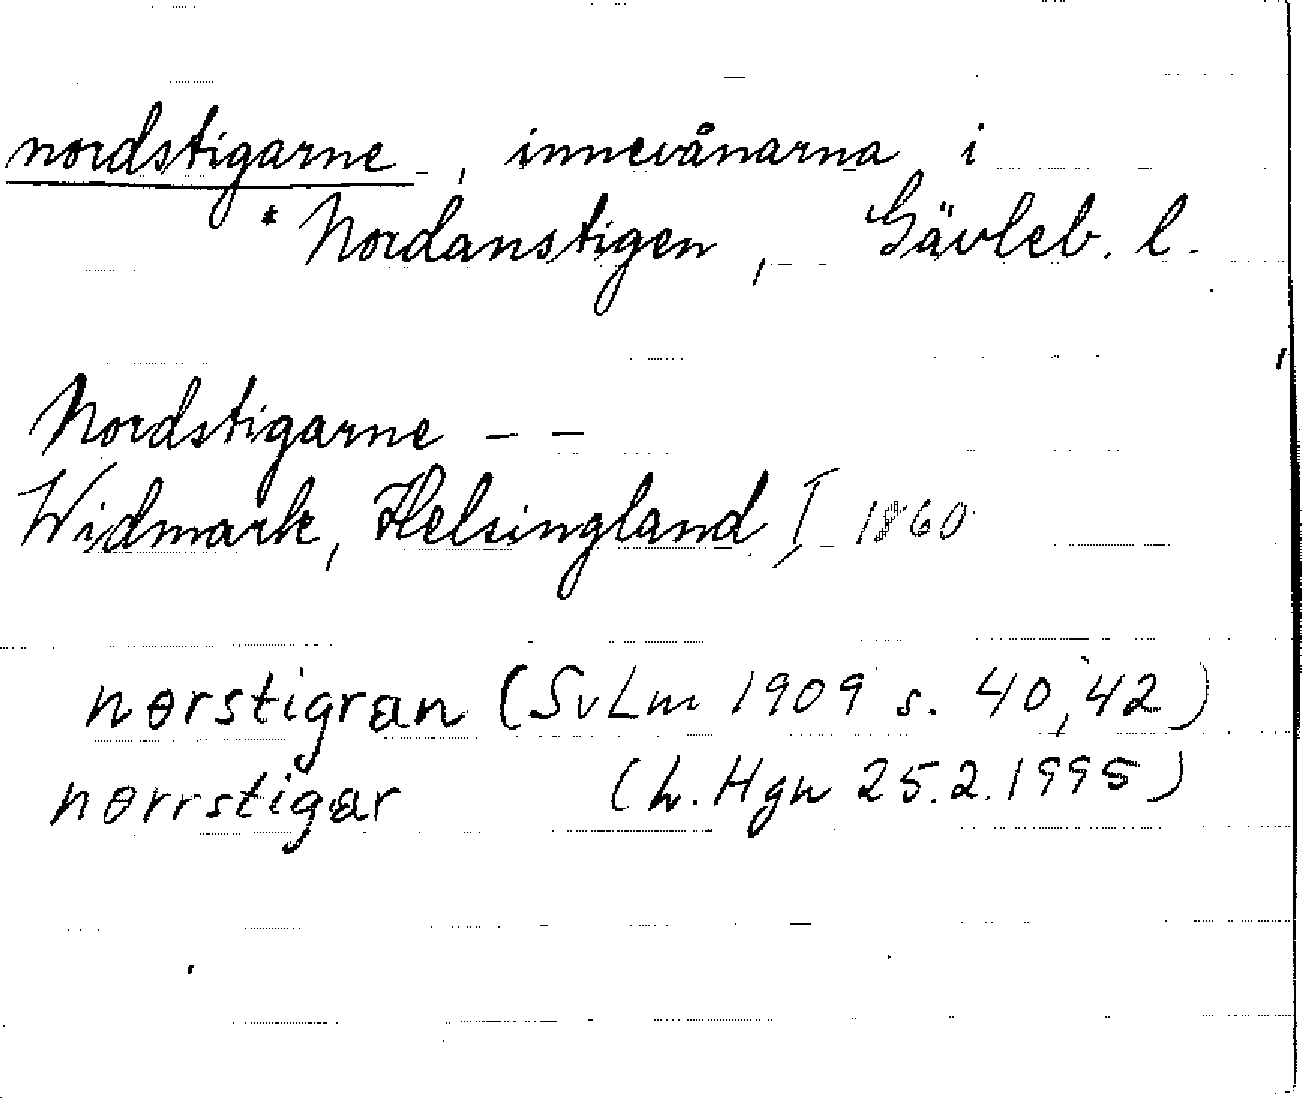 nordstigarne, innevånarna i
*Nordanstigen, Gävleb. l.
Nordstigarne - -
Widmark, Helsingland I 1860
nørstigran (SvLm 1909 s. 40, 42)
nørrstigar (L. Hgn 25.2.1995)